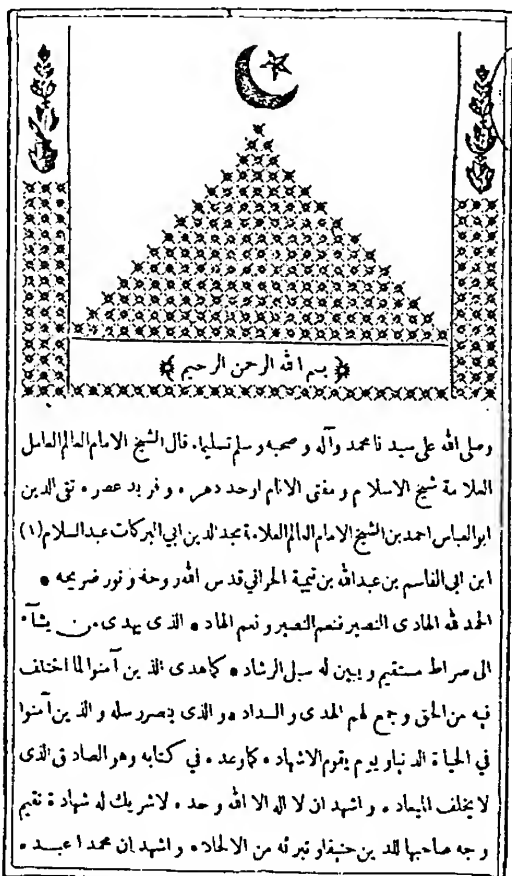 ﴿ بسم الله الرحمن الرحيم ﴾
وصلى الله على سيدنا محمد وآله و صحبه و سلم تسليما. قال الشيخ الامام العالم العامل
العلامة شيخ الاسلام و مفتى الانام اوحد دهره و فريد عصره تقى الدين
ابوالعباس احمد بن الشيخ الامام العالم العلامة مجد الدين ابي البركات عبد السلام (١)
ابن ابى القاسم بن عبدالله بن تيمية الحرانى قدس الله روحه و نور ضريحه •
الحمد لله الهادى النصير فنعم النصير و نعم الهاد • الذى يهدى من يشآء
الى صراط مستقيم و يبين له سبل الرشاد • كما هدى الذين آمنوا لما اختلف
فيه من الحق و جمع لهم الهدى و السداد • والذى ينصر رسله و الذين آمنوا
في الحياة الدنيا و يوم يقوم الاشهاد • كما وعده في كتابه وهو الصادق الذى
لا يخلف الميعاد • و اشهد ان لا اله الا الله وحده لا شريك له شهادة تقيم
وجه صاحبها للدين حنيفا و تبرئه من الالحاد • و اشهد ان محمدا عبده •